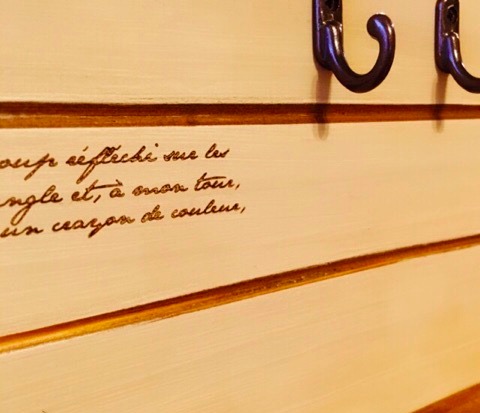 oup réfléchi sur les
ngle et, à mon tour,
un crayon de couleur,